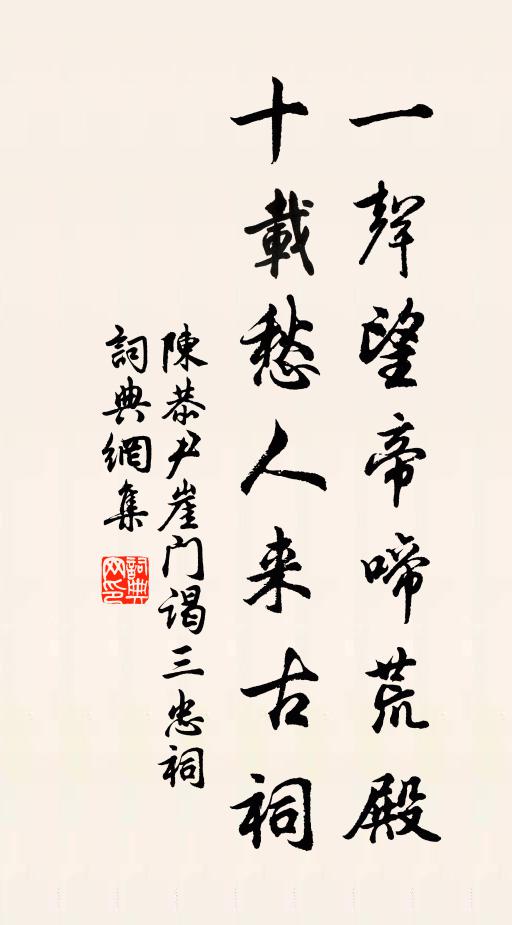 一聲望帝啼荒殿
十載愁人来古祠
陳恭尹崖门谒三忠祠
詞典網集
詞典网印